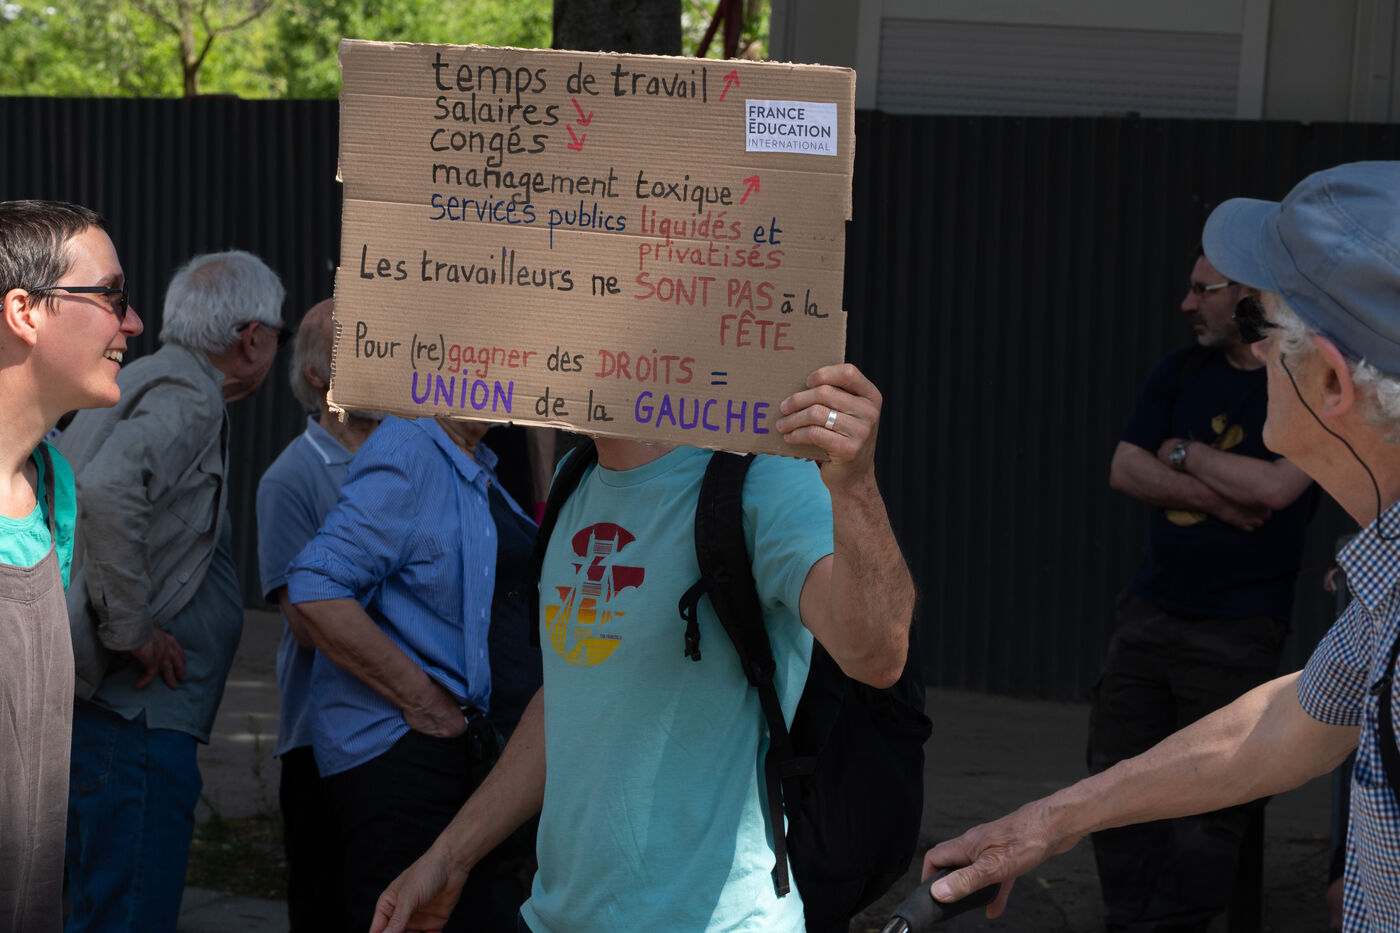 temps de travail ↗
salaires ↘
congés ↘
management toxique ↗
services publics liquidés et
privatisés
Les travailleurs ne SONT PAS à la
FÊTE
Pour (re)gagner des DROiTS =
UNiON de la GAUCHE
FRANCE
ÉDUCATION
INTERNATIONAL